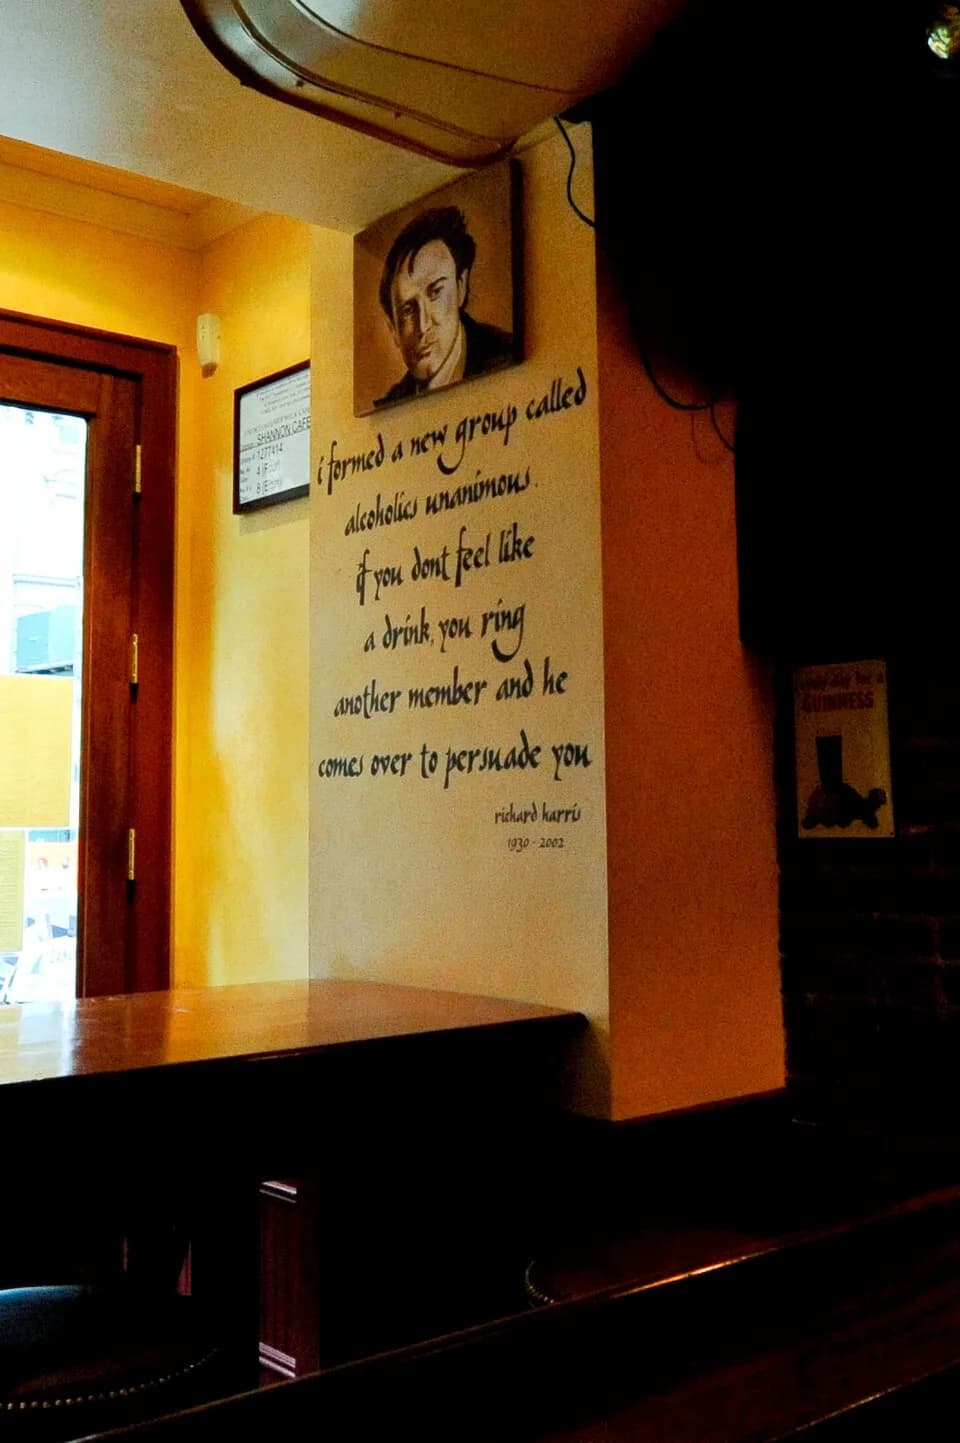 i formed a new group called
alcoholics unanimous.
if you dont feel like
a drink, you ring
another member and he
comes over to persuade you
richard harris
1930 - 2002
SHANNON CAFE
1277414
4 (F
8 (E
GUINNESS